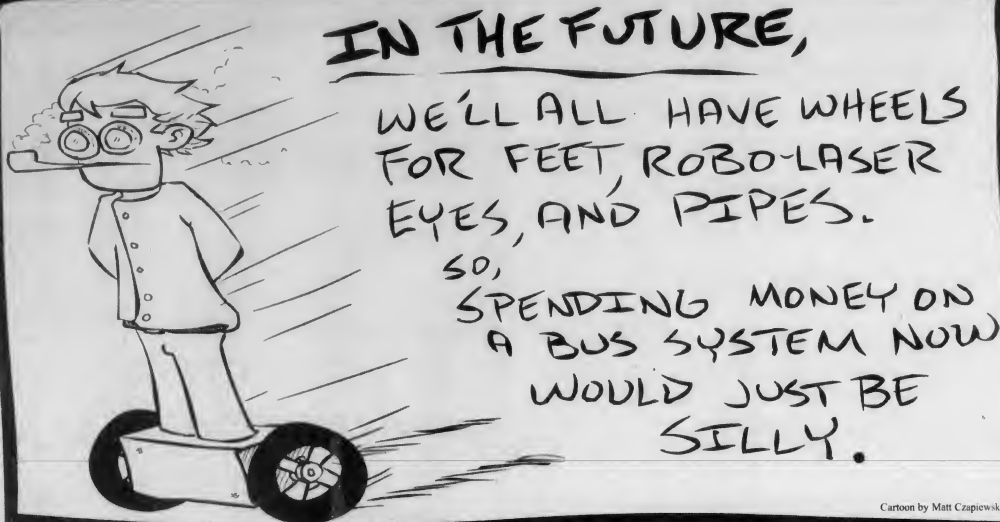 IN THE FUTURE,
WE'LL ALL HAVE WHEELS
FOR FEET, ROBO-LASER
EYES, AND PIPES.
SO,
SPENDING MONEY ON
A BUS SYSTEM NOW
WOULD JUST BE
SILLY.
Cartoon by Matt Czapiewsk